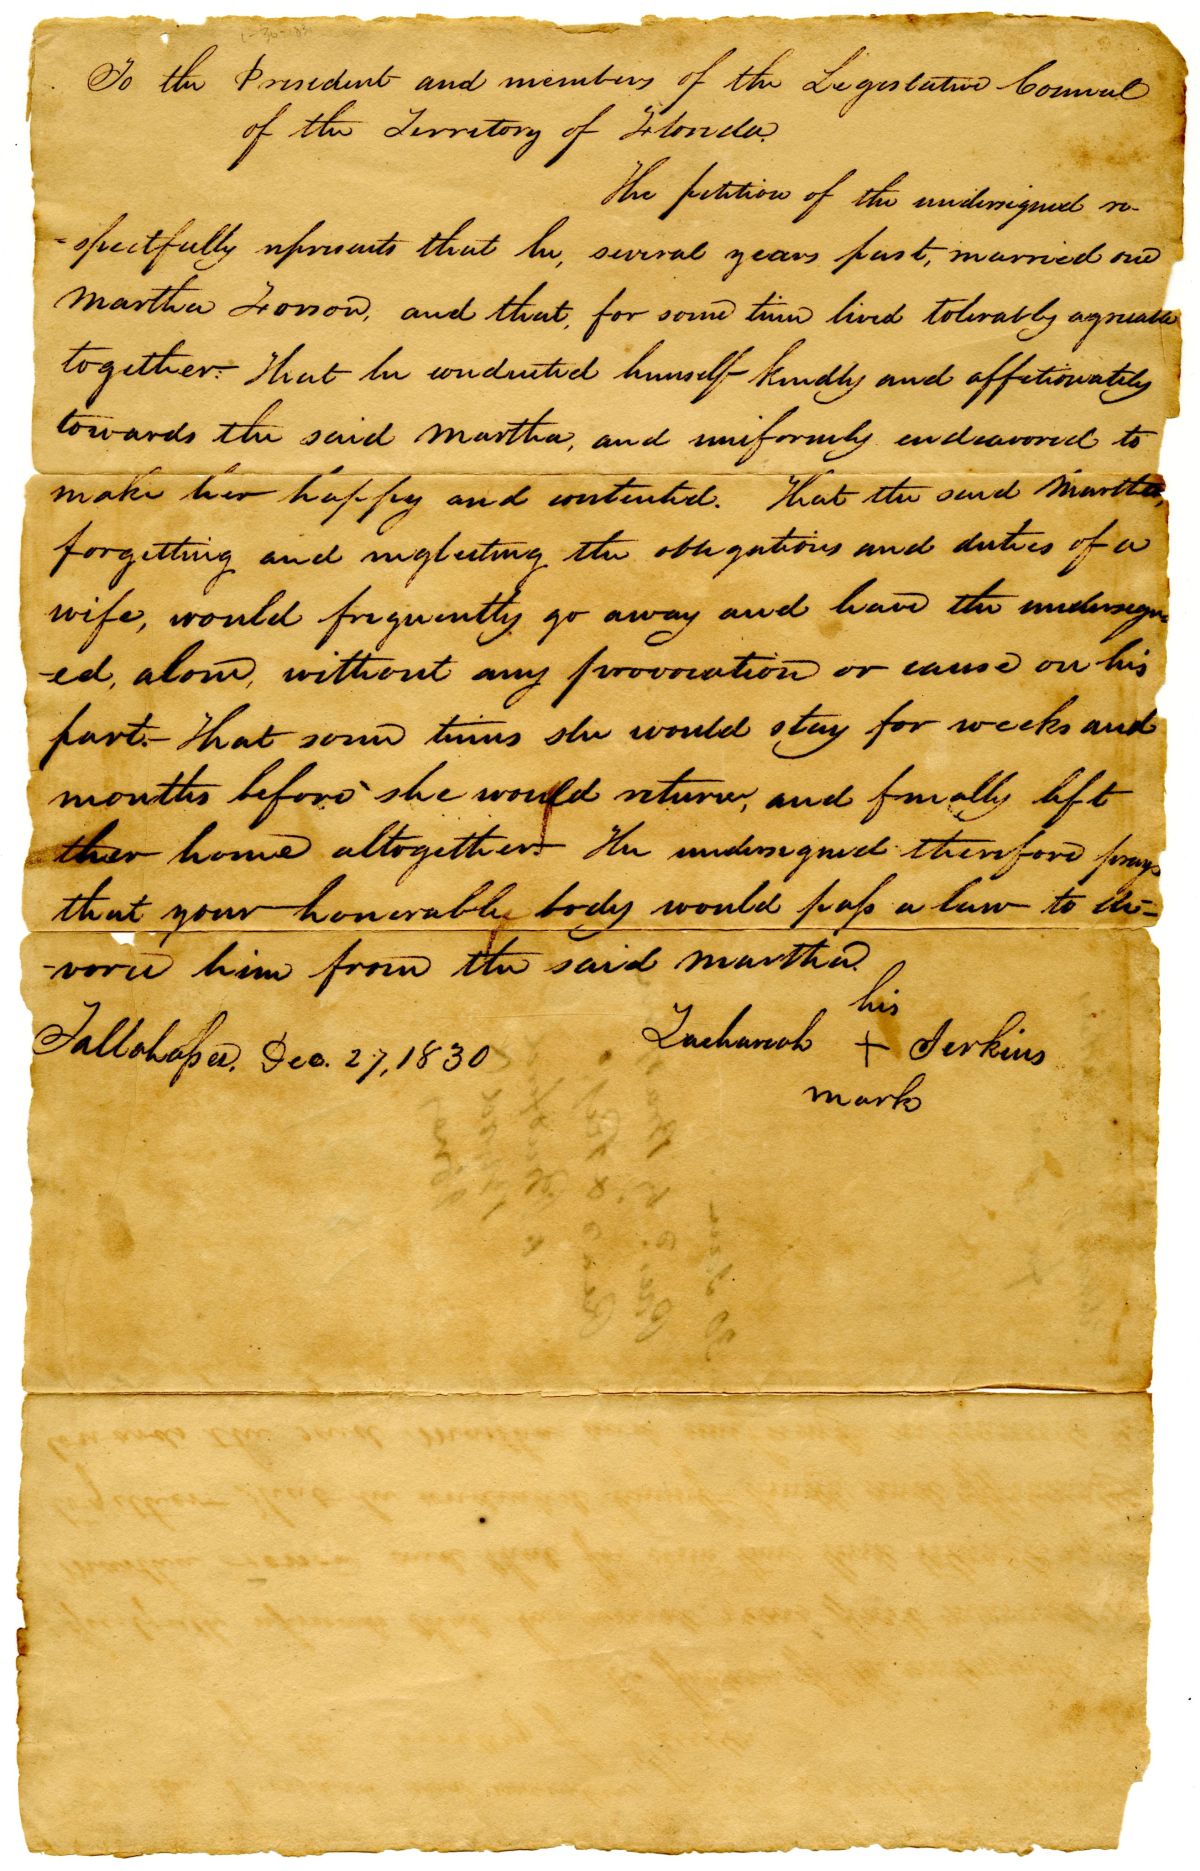 To the President and members of the Legislative Council
of the Territory of Florida.
The petition of the undersigned re-
-spectfully represents that he, several years past, married one
Martha and that, for some time lived tolerably agreeable
together. That he conducted himself kindly and affetionately
towards the said Martha, and uniformly endeavored to
make her happy and contented. That the said Martha,
forgetting and neglecting the obligations and duties of a
wife, would frequently go away and leave the undersign-
-ed, alone, without any provocation or cause on his
part. - That some times she would stay for weeks and
months before she would return, and finally left
ther home altogether. The undersigned therefore prays
that your honorable body would pass a law to di-
-vorce him from the said Martha.
his
Tallahassee, Dec. 27, 1830 Zachareah + Jerkins
mark